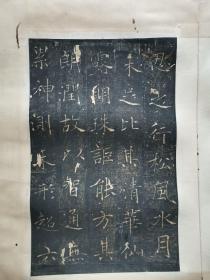 忍之行松風水月
未足比其清華仙
露明珠詎能方其
朗潤故以智通無
累神測未形超六